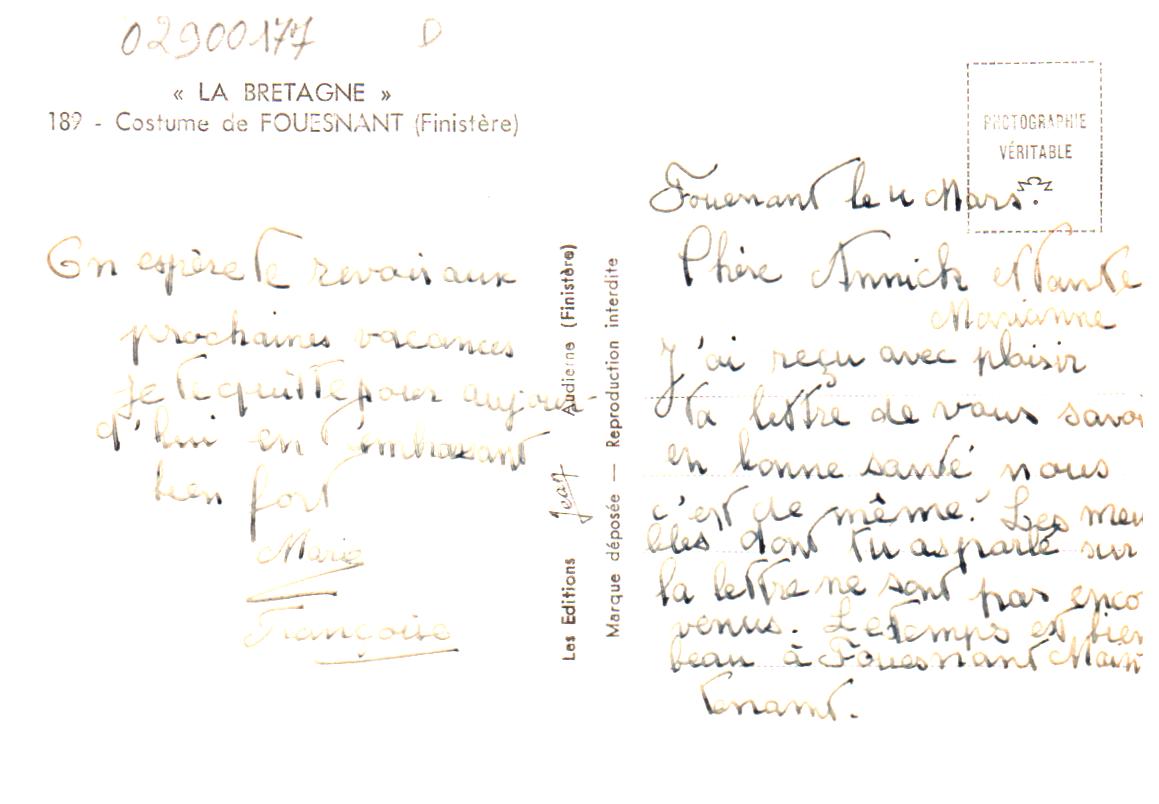 02900177 D
« LA BRETAGNE »
189 - Costume de FOUESNANT (Finistère)
PHOTOGRAPHIE
VÉRITABLE
Fouesnant le 4 Mars.
Chère Annick et tante
Marianne
J'ai reçu avec plaisir
ta lettre de vous savoi
en bonne santé nous
c'est de même. Les meu
bles dont tu as parlé sur
la lettre ne sont pas enco
venus. Le temps est bien
beau à Fouesnant Main
tenant.
On espère te revoir aux
prochaines vacances
je te quitte pour aujour-
d'hui en embrasant
bien fort
Marie
Françoise
Les Editions Jean Audierne (Finistère)
Marque déposée — Reproduction interdite